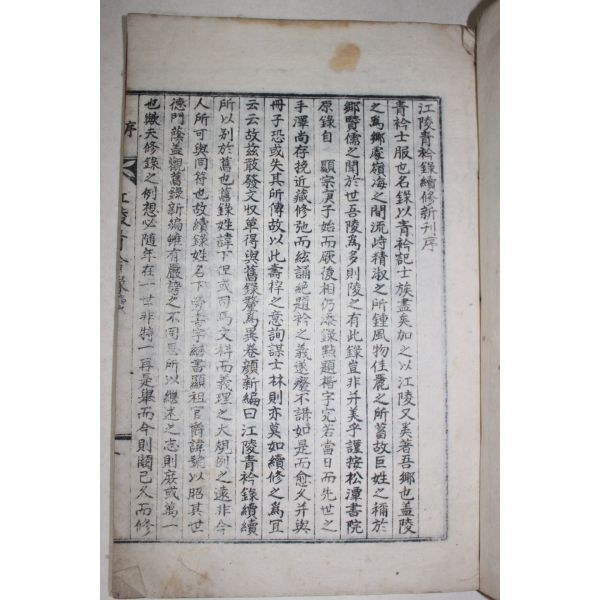 江陵青衿錄續修新刊序
青衿士服也名錄以青衿記士族盡矣加之以江陵又美著吾鄉也盖陵
之爲鄉處嶺海之間流峙精淑之所鍾風物佳麗之所蓄故巨姓之稱於
鄉賢儒之聞於世吾陵爲多則陵之有此錄豈非并美乎謹按松潭書院
原錄自 顯宗庚子始而厥後相仍添錄點題楷字完若當日而先世之
手澤尚存挽近藏修弛而絃誦絶題衿之義遂廢不講如是而愈久并與
冊子恐或失其所傳故以此壽梓之意詢謀士林則亦莫如續修之爲宜
云云故玆敢發文収單得與舊錄釐爲異卷顏新編曰江陵青衿錄續續
所以別於舊也舊錄姓諱下但或司馬文科而義理之大規例之遠非今
人所可與同符也故續錄姓名下旁書字繼書顯祖官爵諱號以昭其世
德門蔭盖觀舊錄新編雖有嚴 之不同思所以繼述之志則庶或萬一
也歟夫修錄之例想必隨年在一世非特一再是舉而今則閱已久而修
序
江陵青衿錄